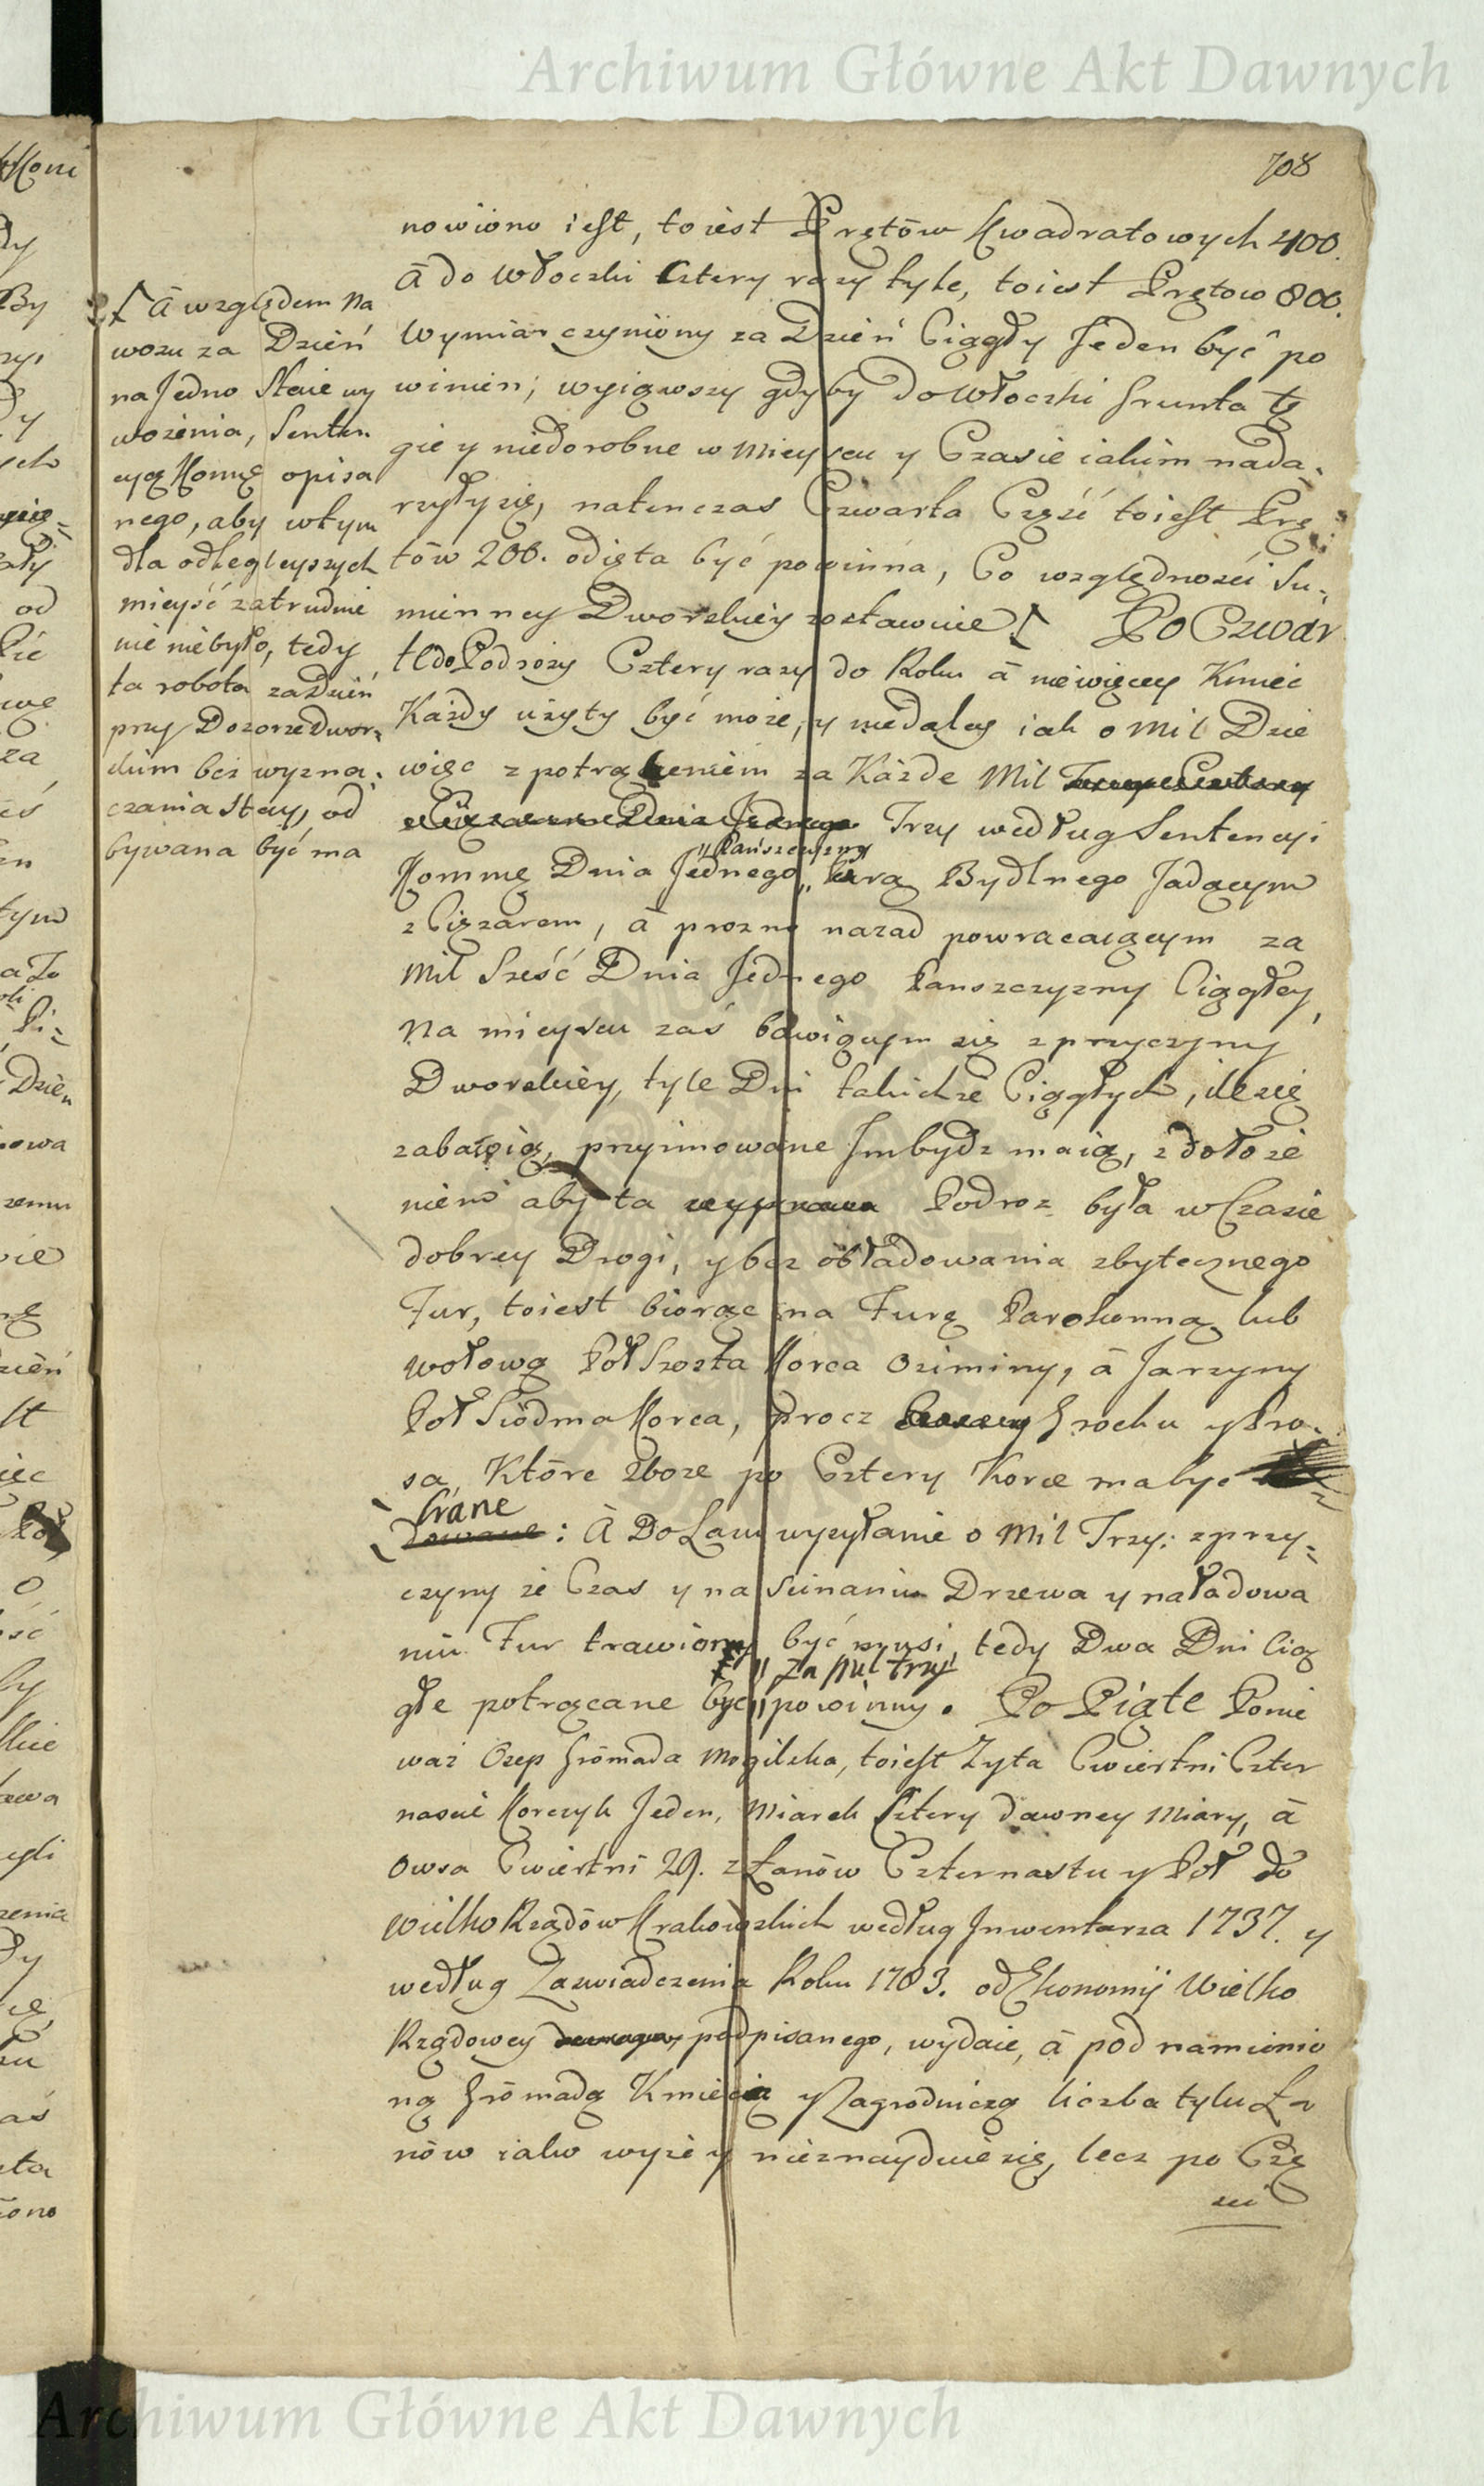 Archiwum Główne Akt Dawnych
708
nowiono iest, toiest Prętów Kwadratowych 400.
à do Włoczki Cztery razy tyle, toiest Prętow 800.
Wymiar czyniony za Dzień Ciągły Jeden być po
winien; wyiąwszy gdyby do Włoczki Grunta tę
gie y niedorobne w Mieyscu y Czasie iakim nada-
rzyły się, natenczas Czwarta Część toiest Prę
tów 200. odięta być powinna, Co względności Su-
mienney Dworskiey zostawuie Po Czwar
te do Podroży Cztery razy do Roku à niewięcey Kmieć
Każdy użyty być może, y niedaley iak o Mil Dzie
więc z potrąceniem za Każde Mil
Trzy według Sentencyi
Kommę Dnia Jednego „ Parą Bydlnego Jadącym
„ Pańszczyzny
z Ciężarem, à prozno nazad powracaiącym za
Mil Sześć Dnia Jednego Panszczyzny Ciągłey,
Na mieyscu zaś bawiącym się z przyczyny
Dworskiey, tyle Dni takichże Ciągłych, ile się
zabawią, przyimowane Im bydz maią, z dołoże
niem aby ta Podroz była w Czasie
dobrey Drogi, y bez obładowania zbytecznego
Fur, toiest biorąc na Furę Parokonną lub
wołową Poł Szosta Korca Oziminy, à Jarzyny
Poł Siodma Korca, procz Grochu y Pro-
sa, Które Zboze po Cztery Korce ma być
brane
: à Do Lasu wysyłanie o Mil Trzy: z przy-
czyny że Czas y na Scinaniu Drzewa y naładowa
niu Fur trawiony być musi, tedy Dwa Dni Cią
„ Za pul trzy
głe potrącane być „ powinny. Po Piąte Ponie
waż Osep Gromada Mogilska, toiest Zyta Cwiertni Czter
nascie Korczyk Jeden, Miarek Cztery dawney Miary, à
Owsa Cwiertni 29. z Łanów Czternastu y Poł do
Wielko Rządów Krakowskich według Inwentarza 1737. y
według Zaswiadczenia Roku 1783. od Ekonomij Wielko
Rządowey podpisanego, wydaie, à pod namienio
ną Gromadą Kmiecią y Zagrodniczą liczba tylu Ła
nów iako wyżey nieznayduie się, lecz po Czę
sci
à względem Na
wozu za Dzień
na Jedno Staie wy
wożenia, Senten
cyą Kommę opisa
nego, aby w tym
dla odlegleyszych
mieysć zatrudnie
nie nie było, tedy
ta robota za Dzień
przy Dozorze Dwor-
skim bez wyzna-
czania Stay, od
bywana być ma
Archiwum Główne Akt Dawnych